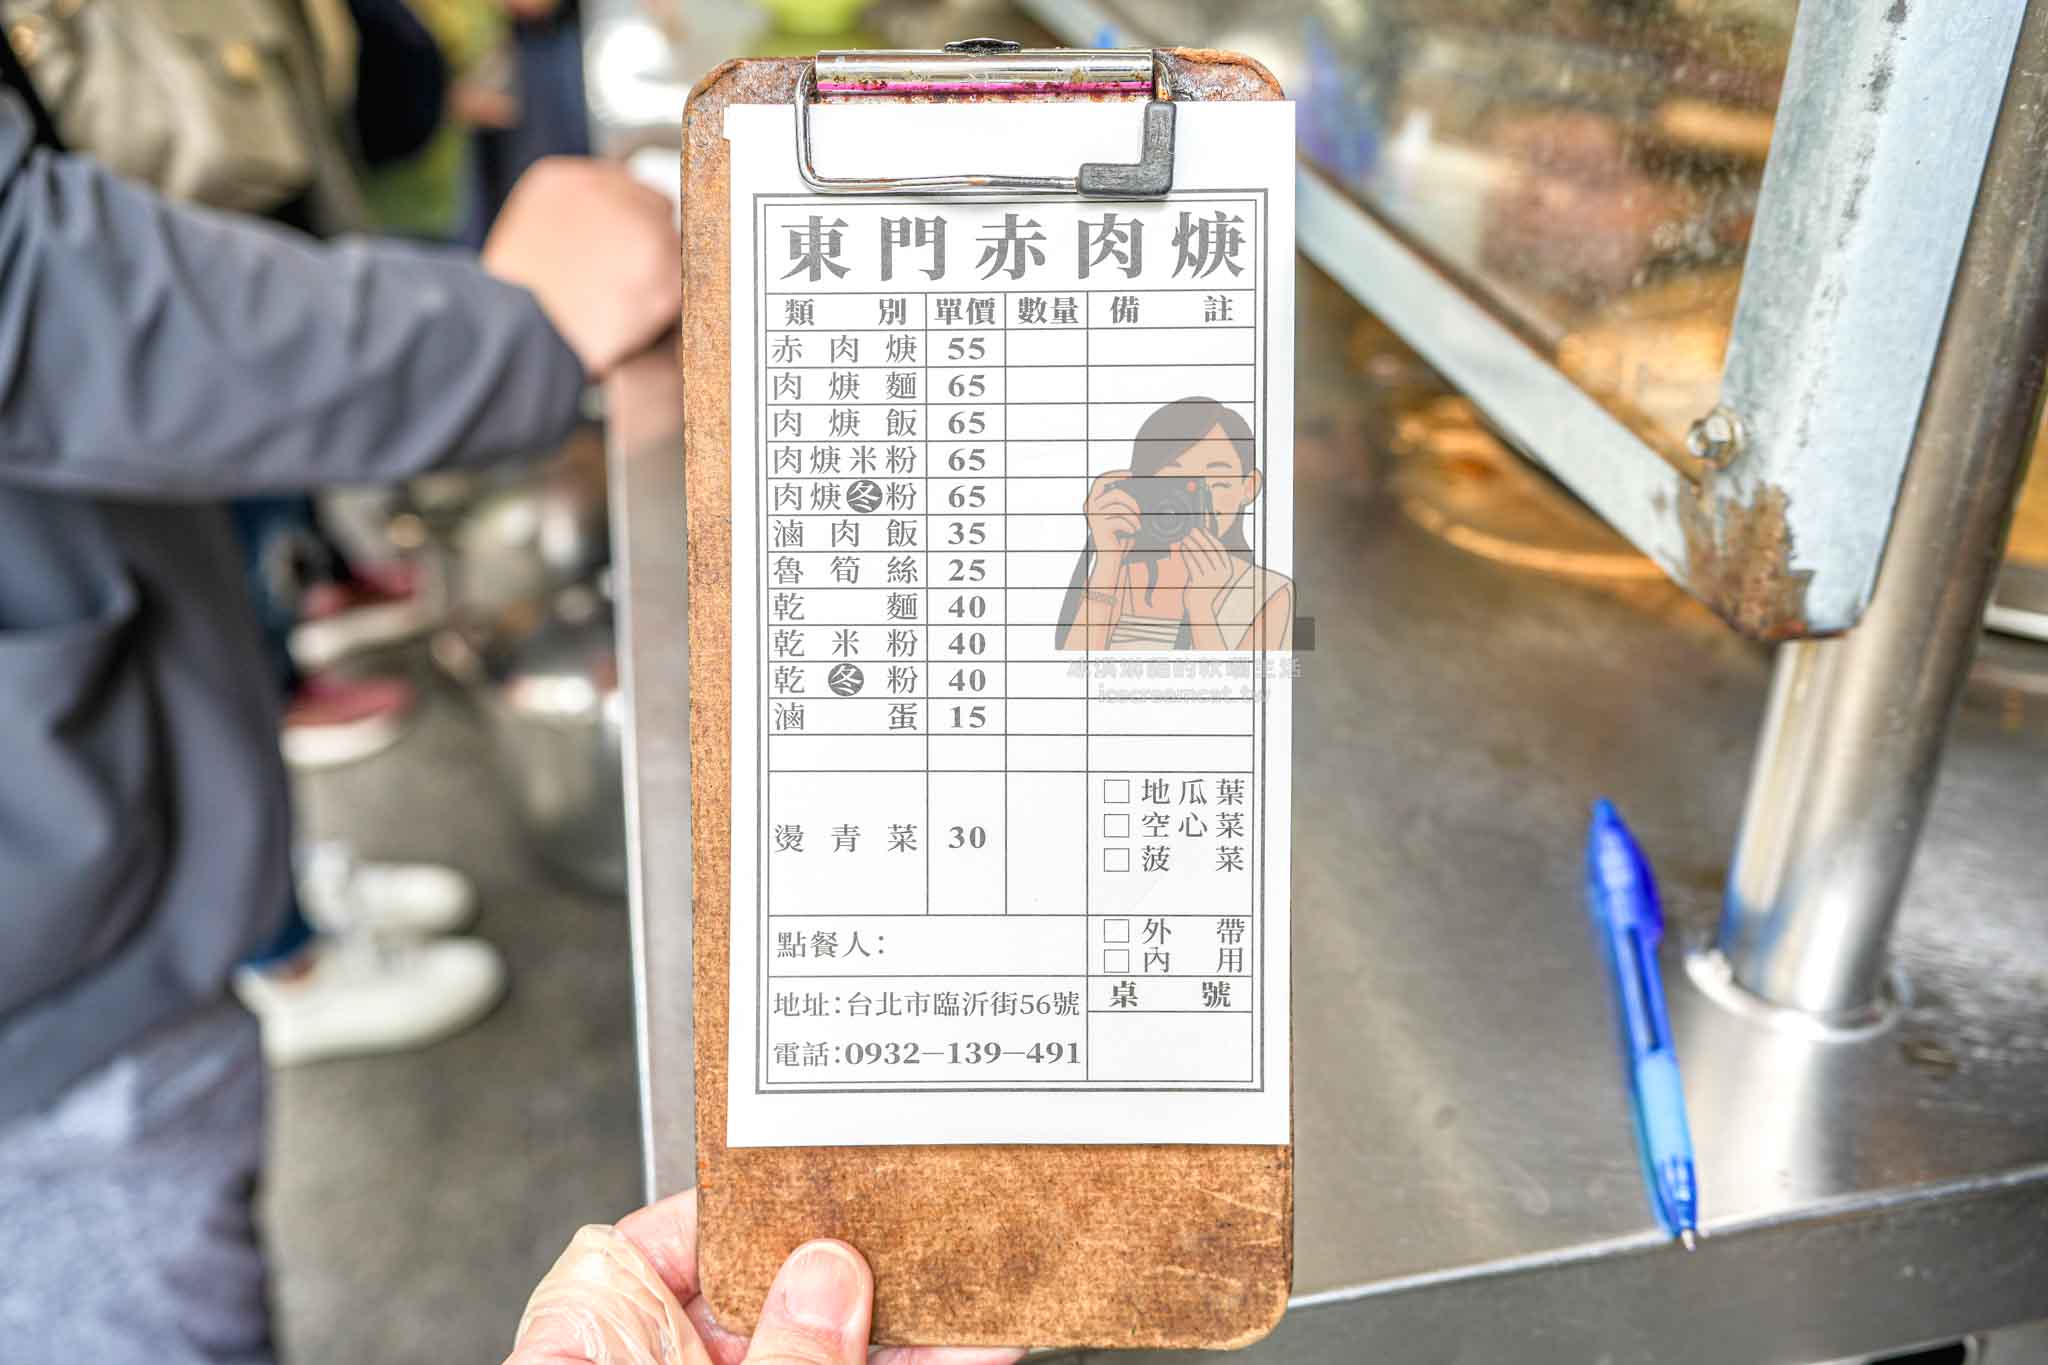 東門赤肉焿
類別 單價 數量 備註
赤肉焿 55
肉焿麵 65
肉焿飯 65
肉焿米粉 65
肉焿冬粉 65
滷肉飯 35
魯筍絲 25
乾麵 40
乾米粉 40
乾冬粉 40
滷蛋 15
燙青菜 30
□ 地瓜葉
□ 空心菜
□ 菠菜
點餐人：
□ 外帶
□ 內用
桌號
地址：台北市臨沂街56號
電話：0932－139－491
icecreamcat.tw